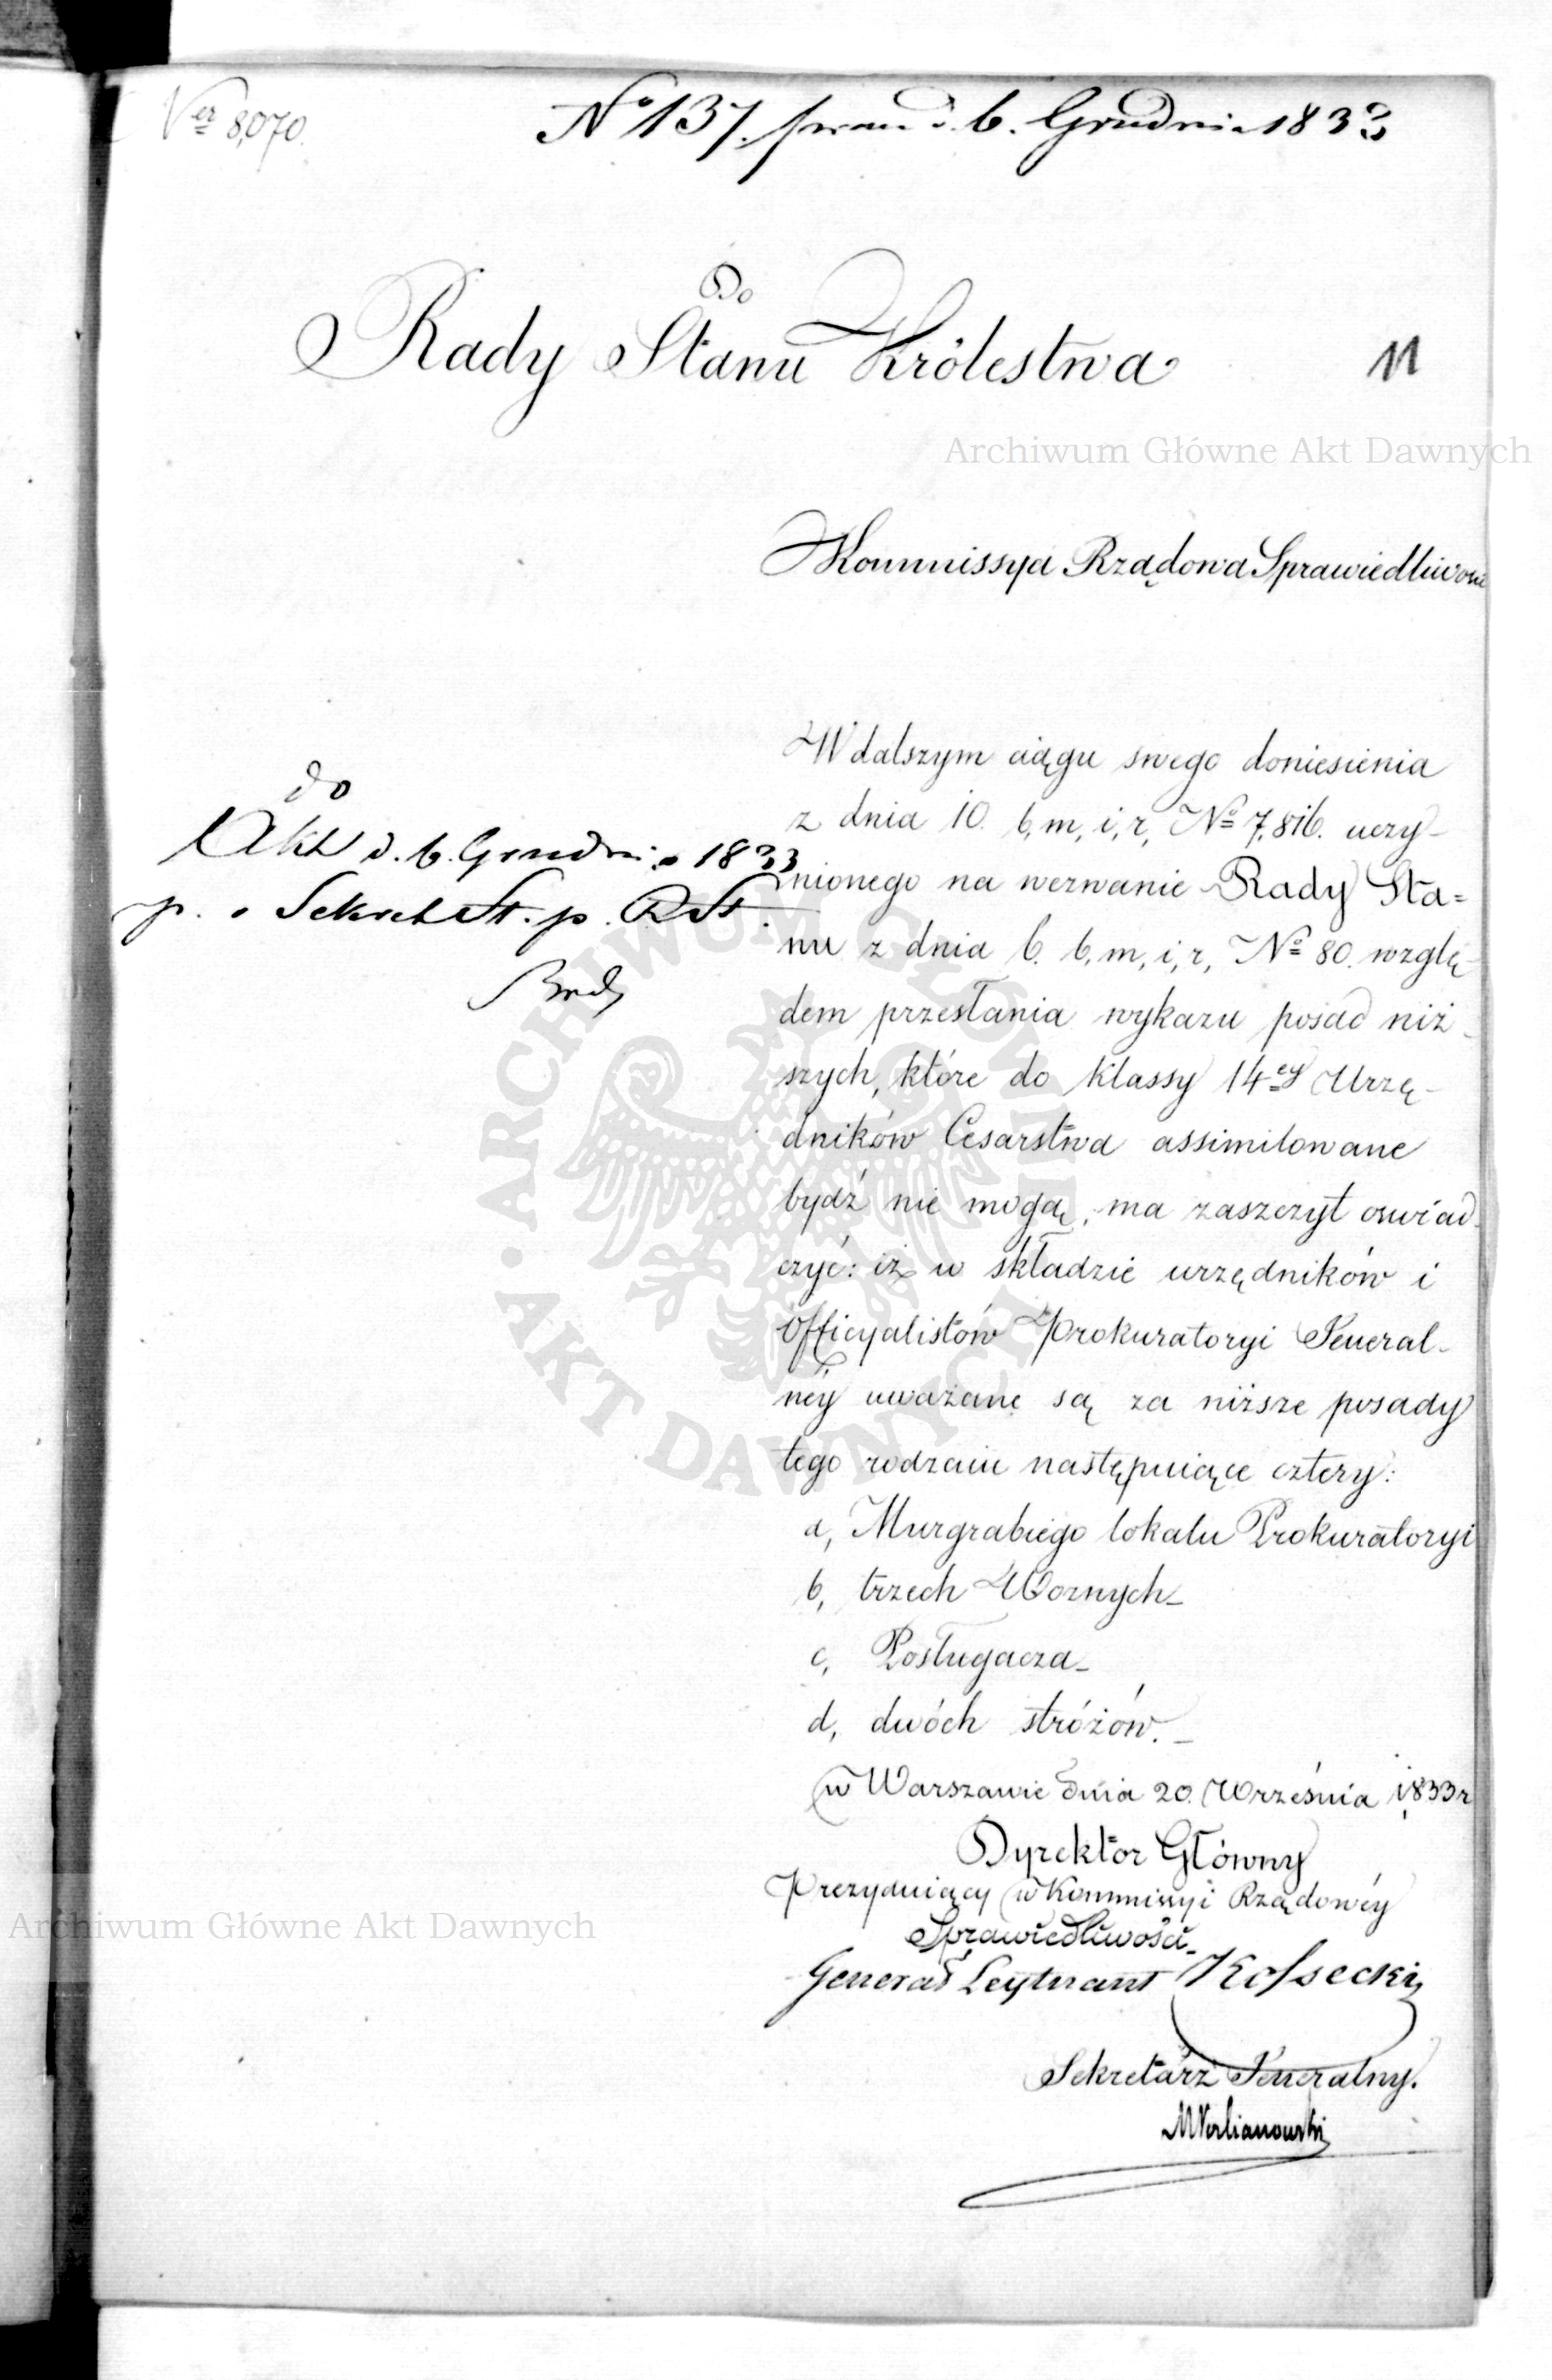 Ner 8,070.
No 137. praes. d. 6. Grudnia 1833
Do
Rady Stanu Królestwa
11
Archiwum Główne Akt Dawnych
Kommissya Rządowa Sprawiedliwości
do
Akt d. 6. Grudnia 1833
p. o Sekret. St. p. R. St.
W dalszym ciągu swego doniesienia
z dnia 10. b, m, i, r, No 7,816. uczy-
nionego na wezwanie Rady Sta=
nu z dnia 6. b, m, i, r, No 80. wzglę-
dem przesłania wykazu posad niż-
szych, które do klassy 14ey Urzę-
dników Cesarstwa assimilowane
bydź nie mogą, ma zaszczyt oświad-
czyć: iż w składzie urzędników i
Officyalistów Prokuratoryi General-
néy uważane są za niższe posady
tego rodzaiu następuiące cztery:
a, Murgrabiego lokalu Prokuratoryi
b, trzech Woznych_
c, Posługacza_
d, dwóch stróżów._
w Warszawie dnia 20. Września 1833 r
Dyrektor Główny
Prezyduiący w Kommissyi Rządowéy
Sprawiedliwości
Generał Leytnant Kossecki
Sekretarz Generalny.
ARCHIWUM GŁÓWNE • AKT DAWNYCH
Archiwum Główne Akt Dawnych